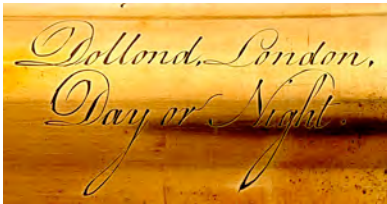 Dollond, London,
Day or Night.